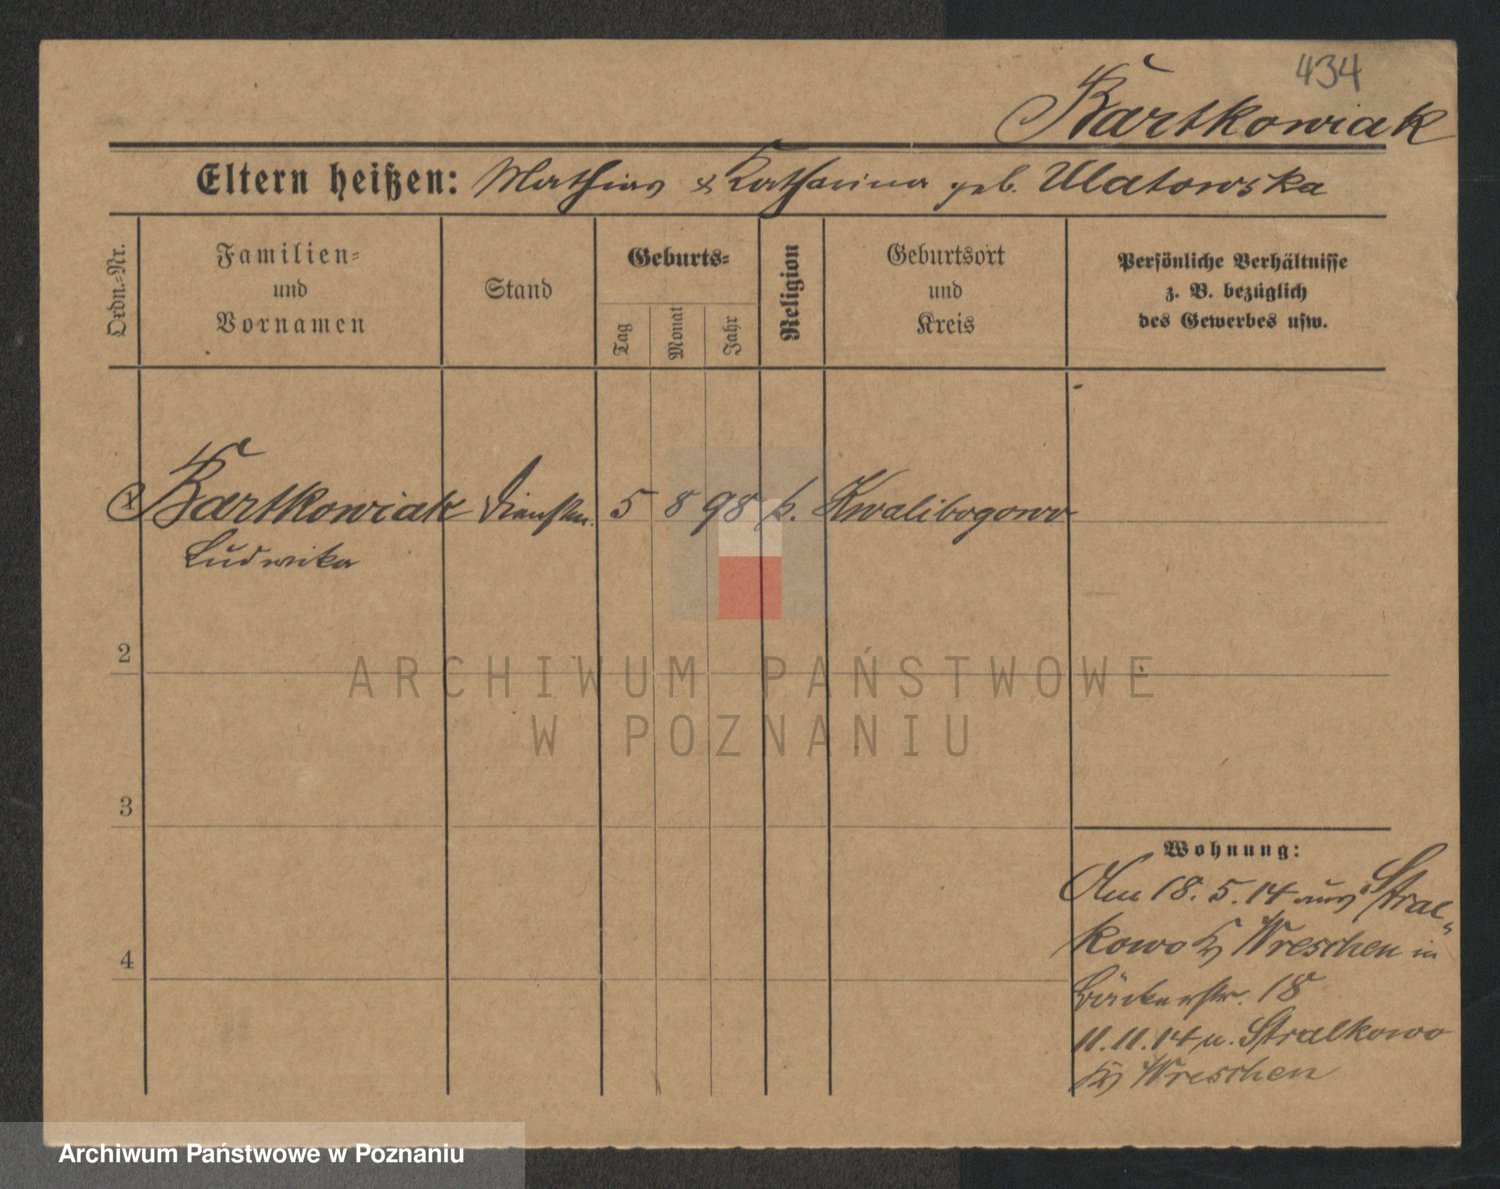 434
Bartkowiak
Eltern heißen: Mathias & Katharina geb. Ulatowska
Ordn.-Nr.
Familien- und Vornamen
Stand
Geburts-
Tag
Monat
Jahr
Religion
Geburtsort und Kreis
Persönliche Verhältnisse
z. B. bezüglich
des Gewerbes usw.
1 Bartkowiak Dienstm. 5 8 98 k. Kwalibogowo
Ludwika
2
3
4
Wohnung:
Am 18. 5. 14 aus Stral-
kowo Kr Wreschen in
Bäckerstr. 18
11.11.14 n. Stralkowo
Kr Wreschen
ARCHIWUM PAŃSTWOWE
W POZNANIU
Archiwum Państwowe w Poznaniu